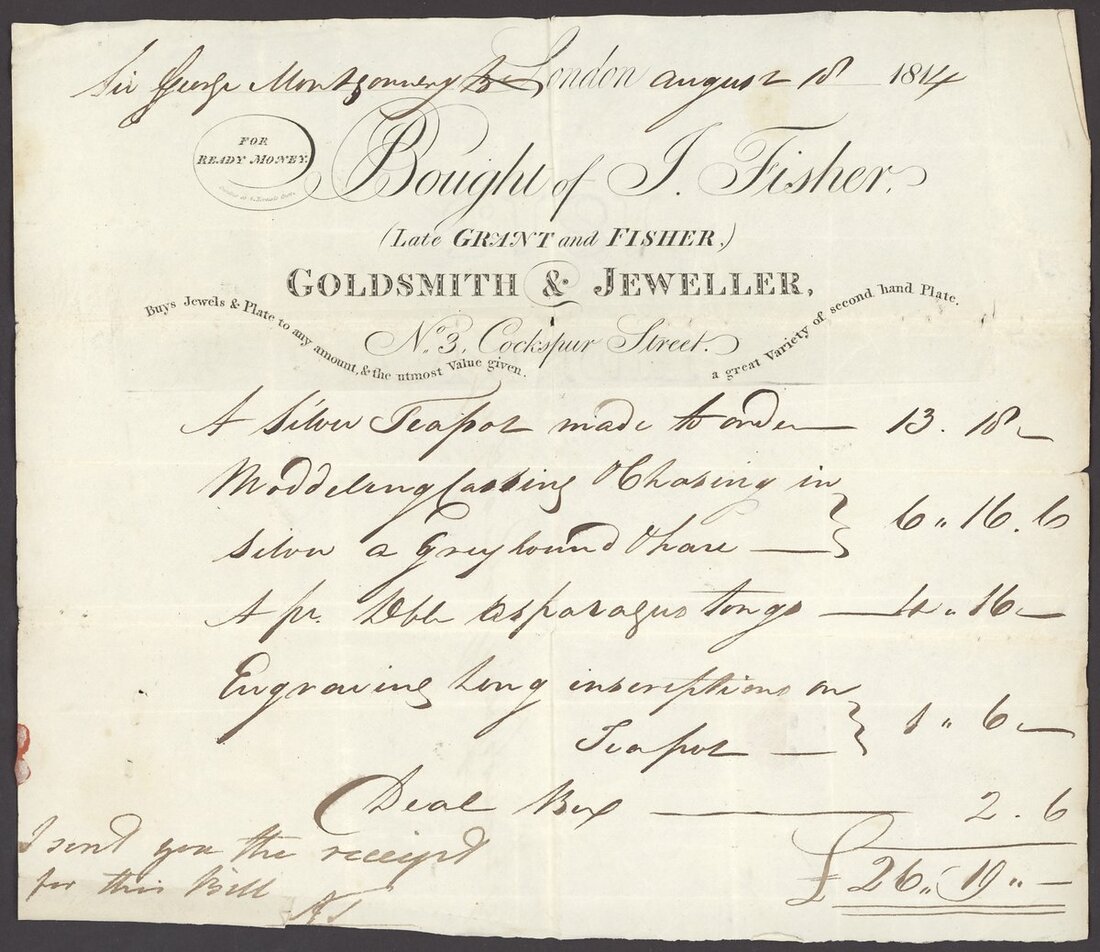 Sir George Montgomery Bt London august 18 1814
FOR
READY MONEY.
Bought of J. Fisher.
(Late GRANT and FISHER,)
GOLDSMITH & JEWELLER,
No. 3, Cockspur Street.
Buys Jewels & Plate to any amount, & the utmost Value given.
a great Variety of second hand Plate.
A Silver Teapot made to order — 13. 18 —
Moddeling Casting & Chasing in
Silver a Greyhound & hare — } 6 " 16. 6
A pr. Dble asparagus tongs — 4 " 16 —
Engraving long inscriptions on
Teapot — } 1 " 6 —
Deal Box — 2. 6
£ 26 " 19 " —
I send you the receipt
for this Bill